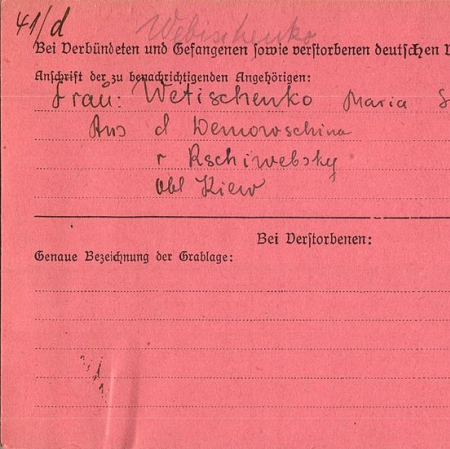 41/d Webischenko
Bei Verbündeten und Gefangenen sowie verstorbenen deutschen
Anschrift der zu benachrichtigenden Angehörigen:
Frau: Wetischenko Maria S
Aus d Demowschina
r Rschiwebsky
obl Kiew
Bei Verstorbenen:
Genaue Bezeichnung der Grablage: